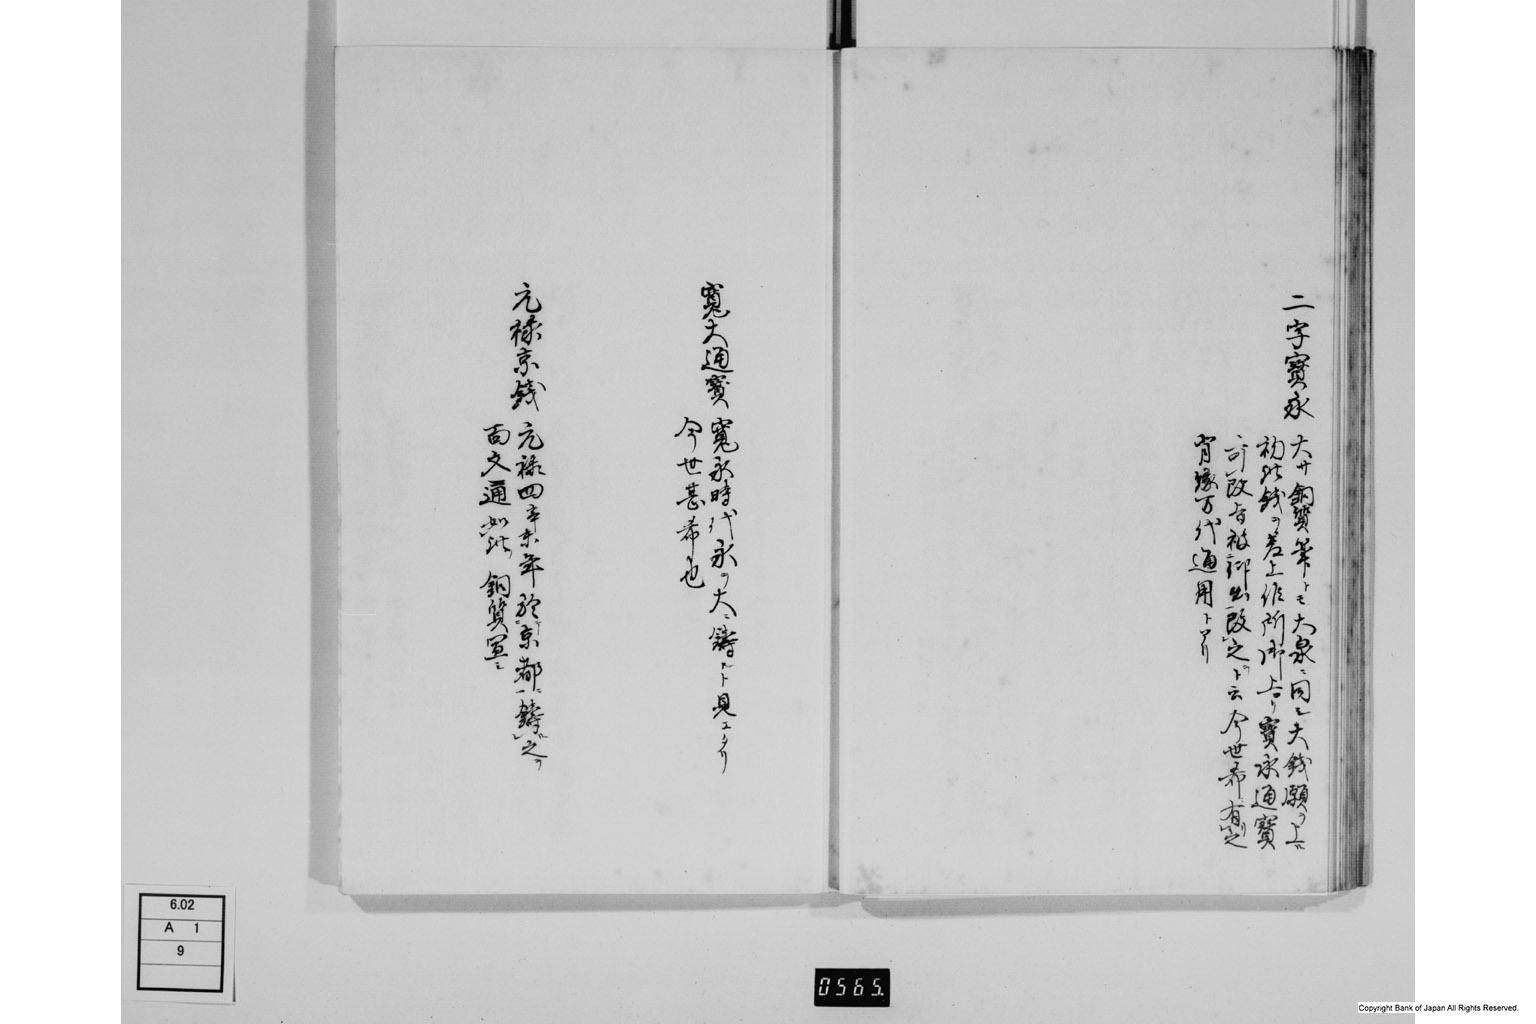 二字寳永
大サ銅質筆トモ大泉ニ同シ大銭願フ上ニ
初此銭ヲ差上役所御上リ寳永通寳
ト改旨被仰出改之ト云今世希有之
背珍万代通用トアリ
寛大通寳
寛永時代永ヲ大ニ鋳ルト見エタリ
今世甚希也
元禄京銭
元禄四辛未年於京都ニ鋳之
面文通如此銅質宜シ
6.02
A 1
9
0565.
Copyright Bank of Japan All Rights Reserved.